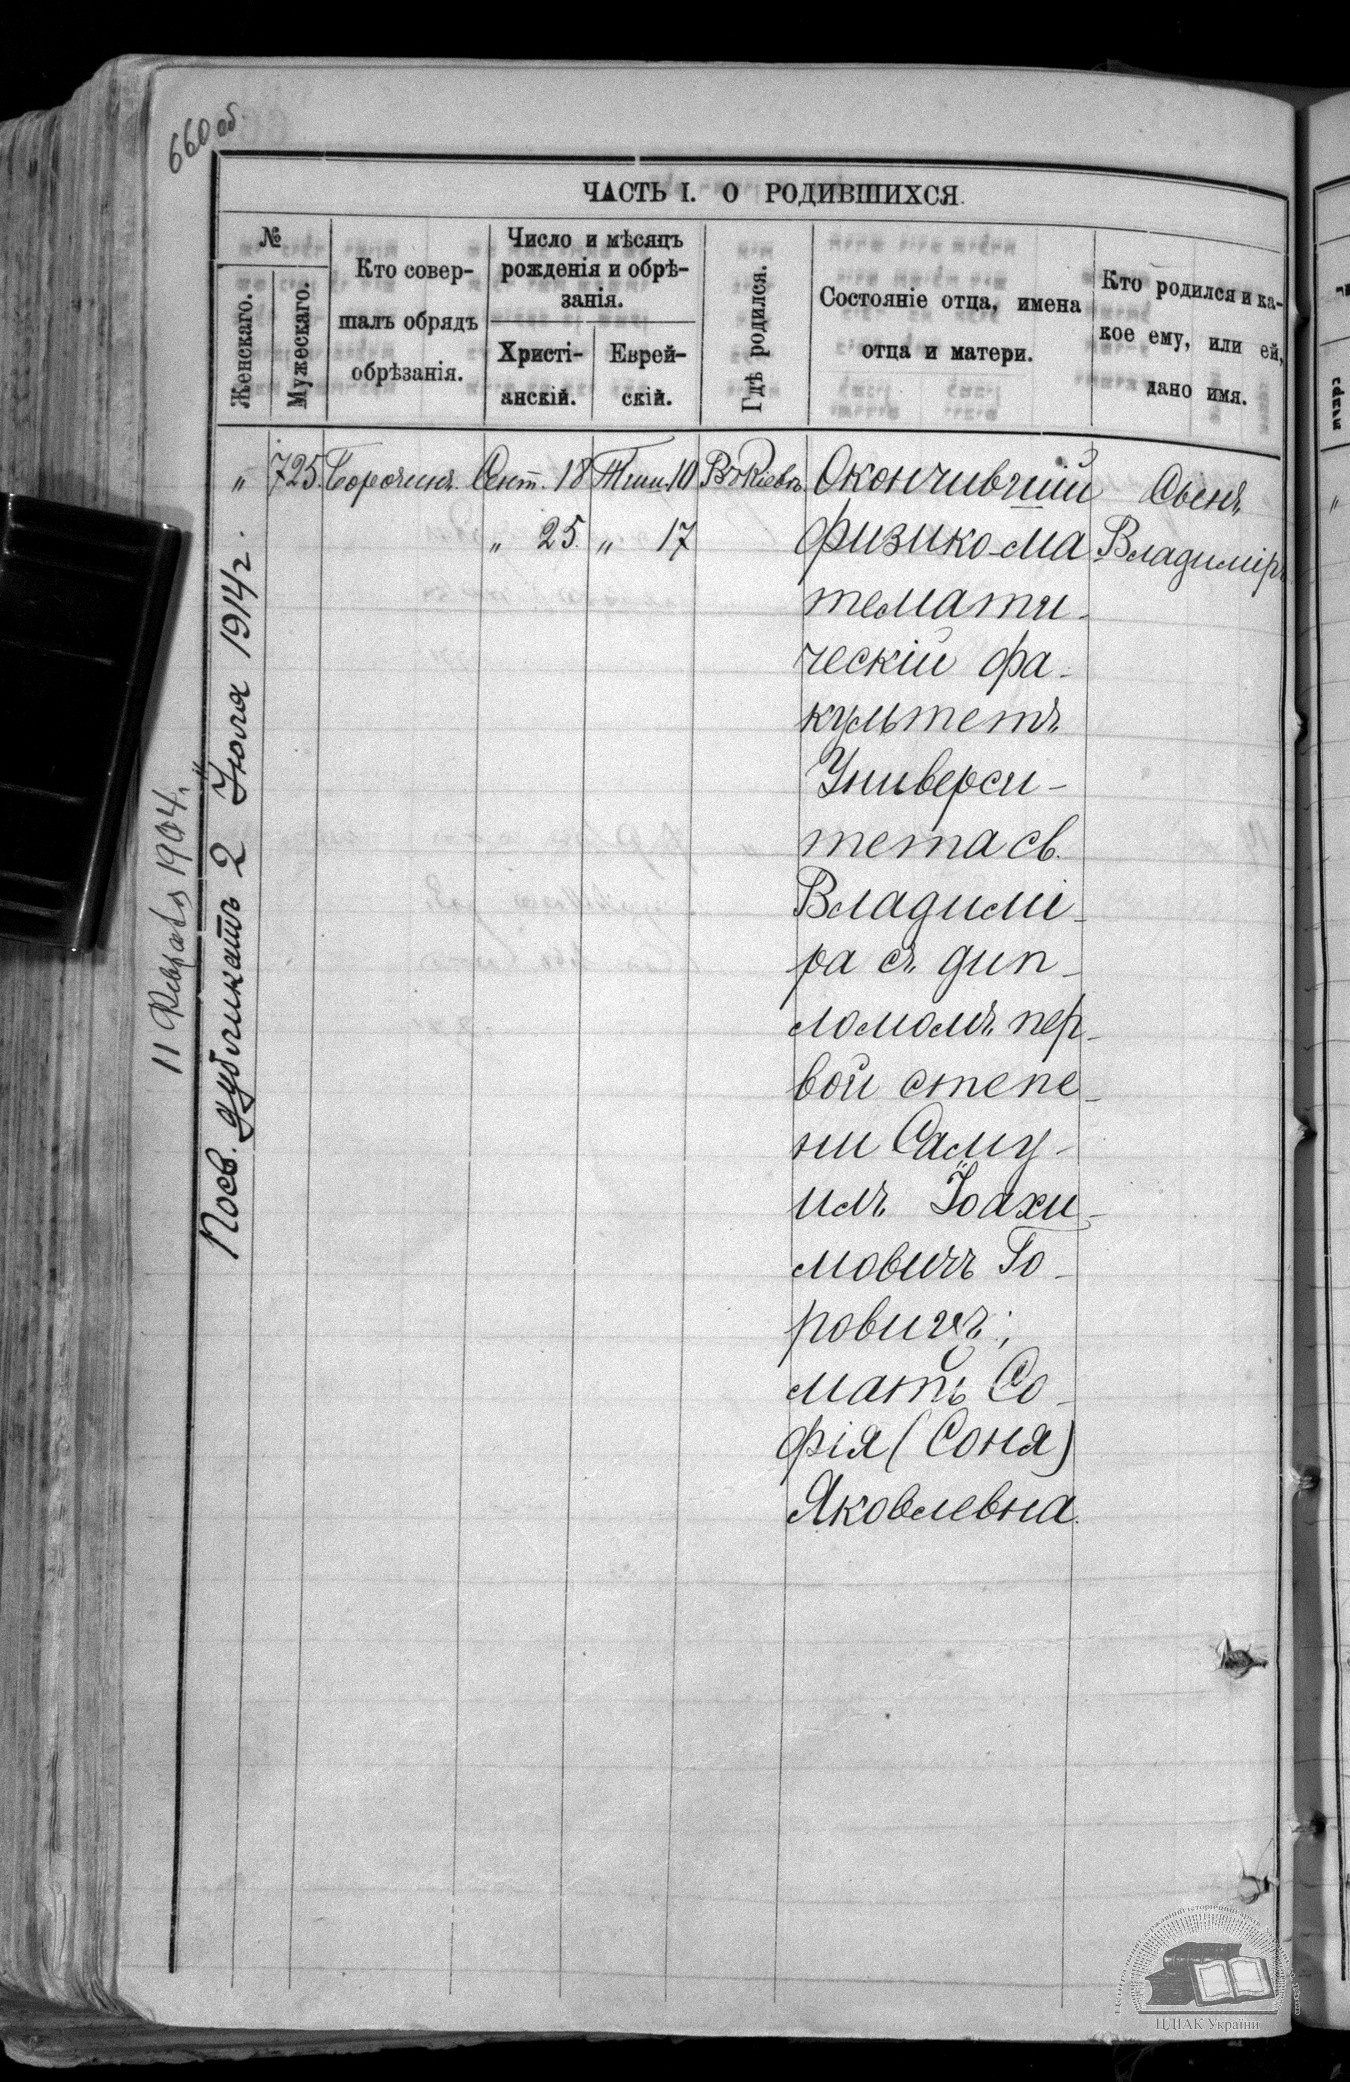 660 об.
ЧАСТЬ I. О РОДИВШИХСЯ.
№
Женскаго.
Мужескаго.
Кто совер-
шалъ обрядъ
обрѣзанія.
Число и мѣсяцъ
рожденія и обрѣ-
занія.
Христі-
анскій.
Еврей-
скій.
Гдѣ родился.
Состояніе отца, имена
отца и матери.
Кто родился и ка-
кое ему, или ей,
дано имя.
" 725. Сент. 18 Тиш. 10 Въ Кіевѣ Окончившій Сынъ
" 25. " 17 физико-ма Владиміръ
темати-
ческій фа-
культетъ
Универси-
тета св.
Владимі-
ра съ дип-
ломомъ пер-
вой степе-
ни Саму-
илъ Іоахи-
мовичъ Го-
ровичъ;
мать Со-
фія (Соня)
Яковлевна.
11 Февраля 1904.
Посв. дубликатъ 2 Іюля 1914 г.
ЦДІАК України